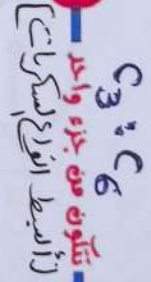 C3 : C6
تتكون من جزء واحد
(أبسط أنواع السكريات)